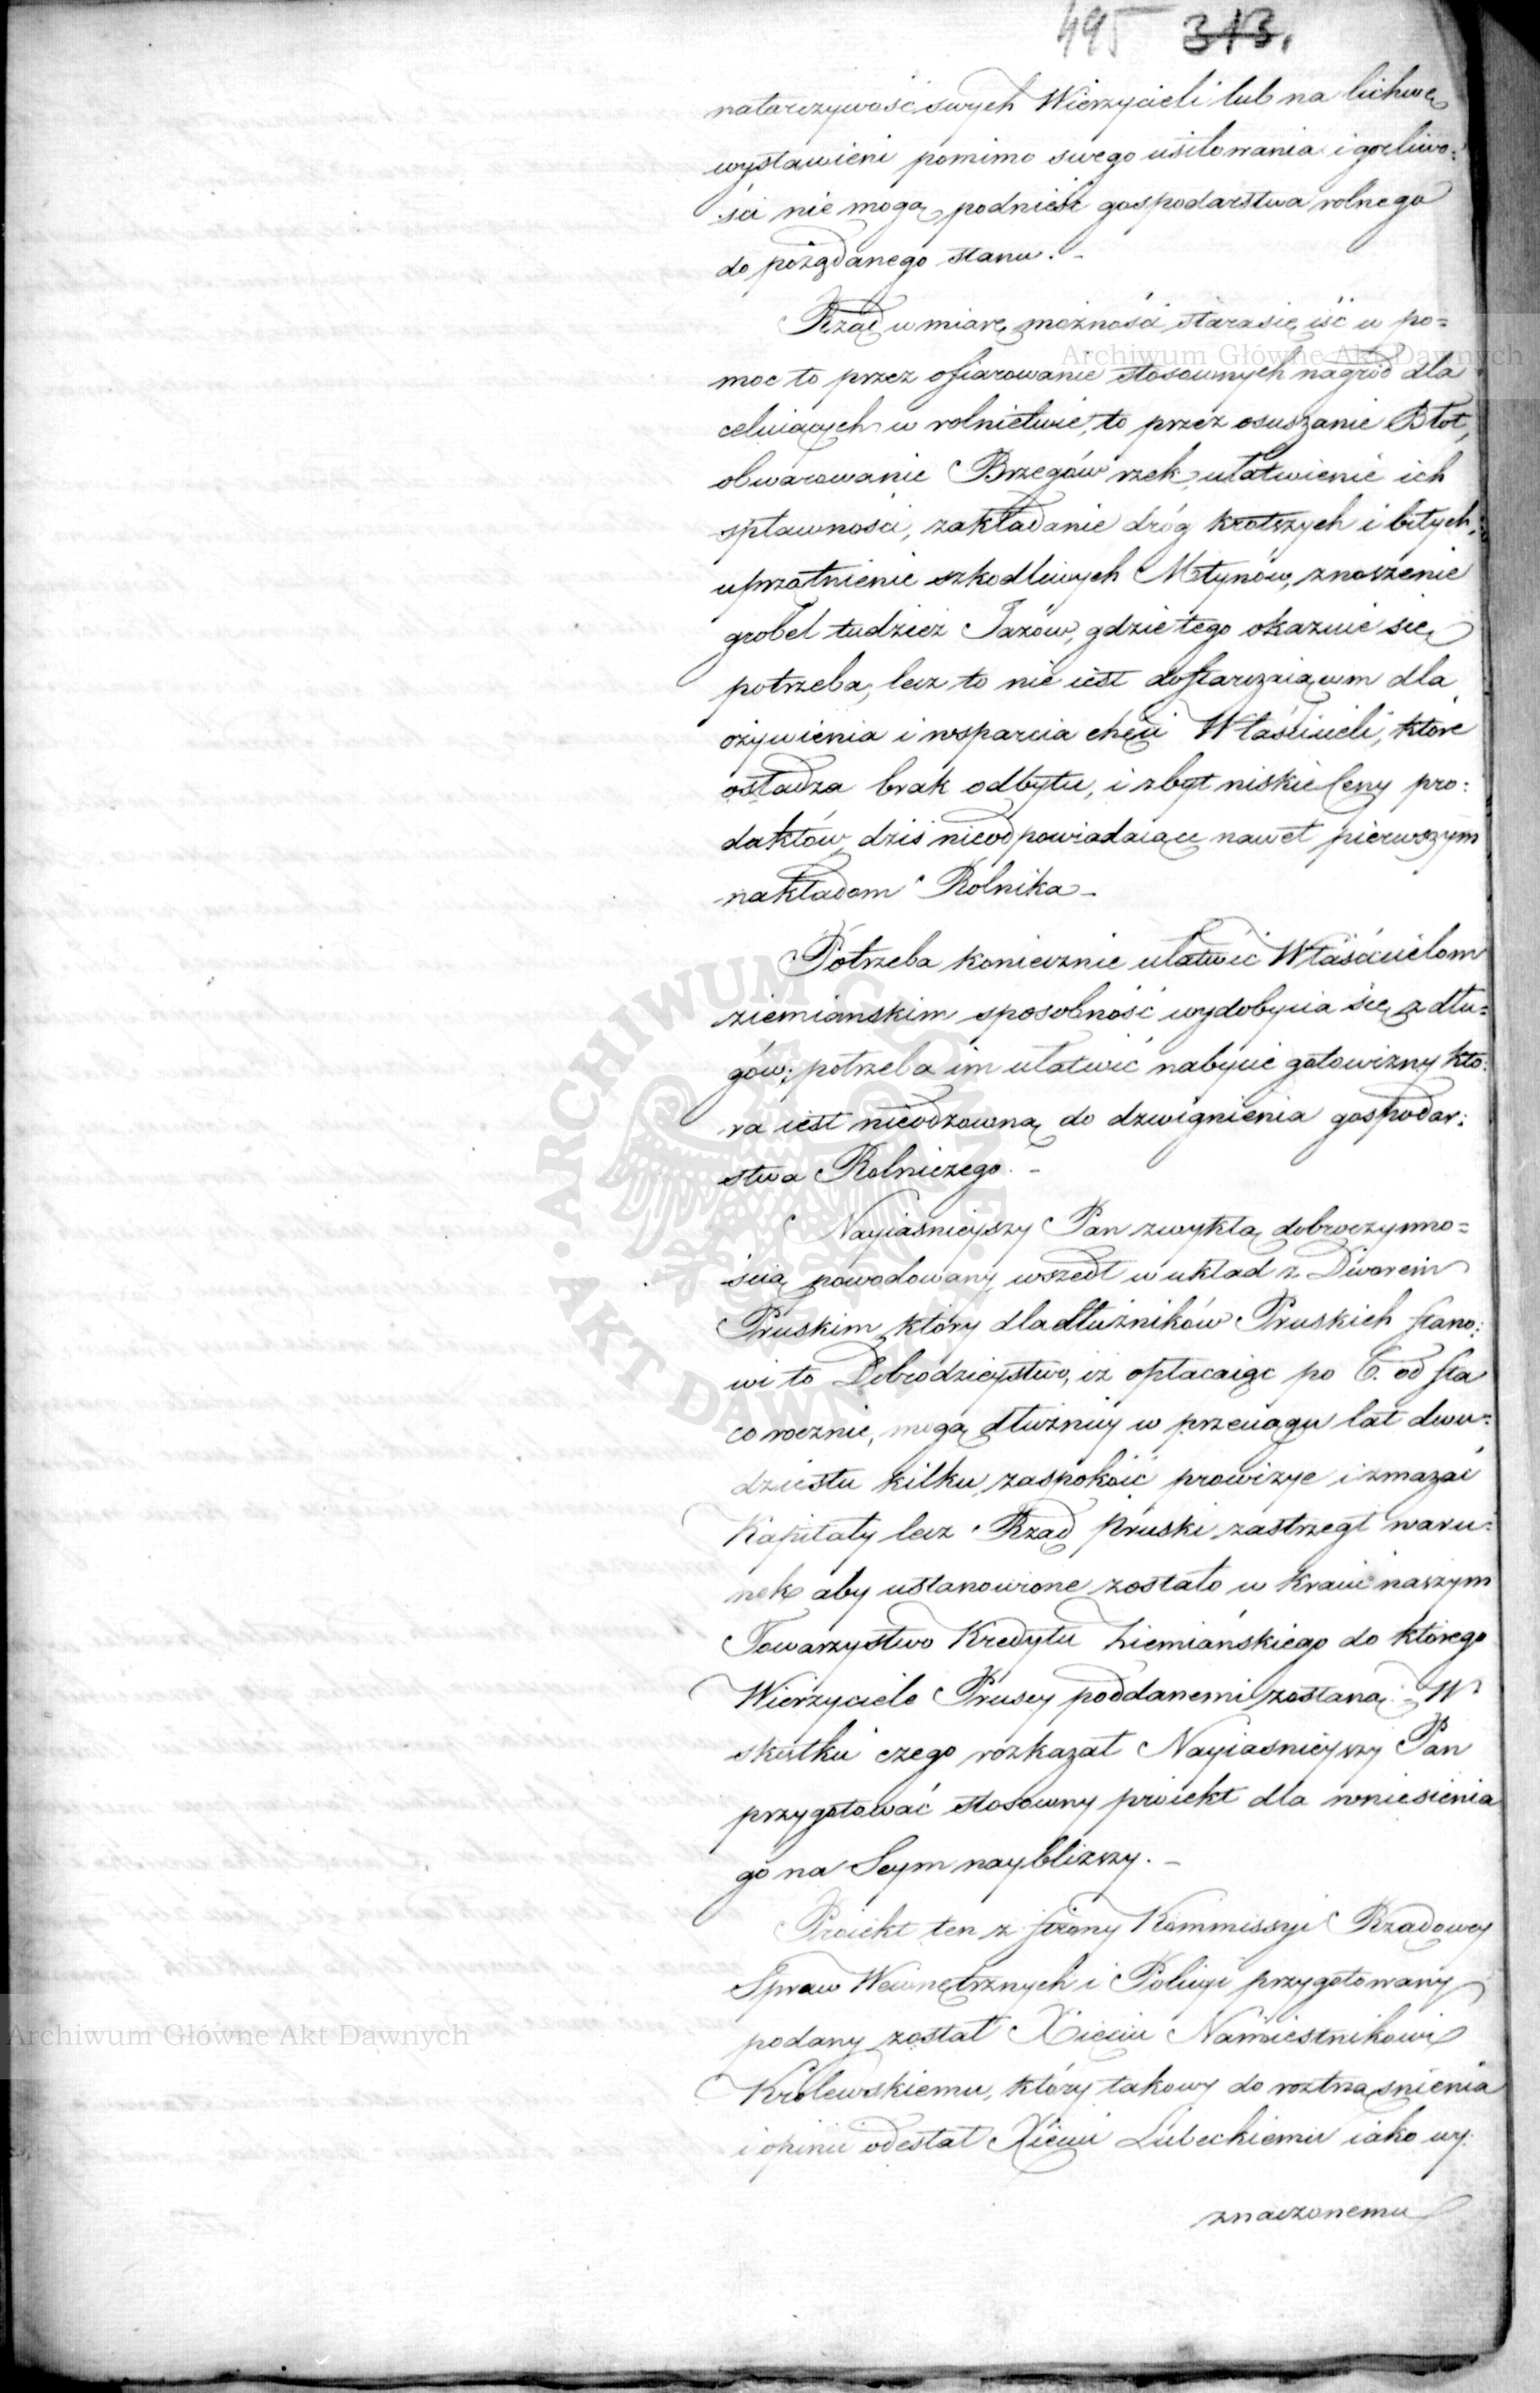 495 313.
natarczywość swych Wierzycieli lub na lichwę
wystawieni pomimo swego usiłowania i gorliwo-
ści nie mogą podnieść gospodarstwa rolnego
do pożądanego stanu. -
Rząd w miarę możności stara się iść w po=
moc to przez ofiarowanie stosownych nagród dla
celuiących w rolnictwie, to przez osuszanie Błot,
obwarowanie Brzegów rzek, ułatwienie ich
spławności, zakładanie dróg krótszych i bitych,
uprzątnienie szkodliwych Młynów, znoszenie
grobel tudzież Jazów, gdzie tego okazuie się
potrzeba, lecz to nie iest dostarczaiącem dla
ożywienia i wsparcia chęci Właścicieli, które
osładza brak odbytu, i zbyt niskie Ceny pro:
duktów, dziś nieodpowiadaiące nawet pierwszym
nakładom Rolnika -
Potrzeba koniecznie ułatwić Właścicielom
ziemiańskim sposobność wydobycia się z dłu=
gów; potrzeba im ułatwić nabycie gotowizny któ:
ra iest nieodzowną do dzwignienia gospodar:
stwa Rolniczego. -
Nayiaśnieyszy Pan zwykłą dobroczynno=
ścią powodowany, wszedł w układ z Dworem
Pruskim, który dla dłużników Pruskich stano:
wi to Dobrodzieystwo, iż opłacaiąc po 6. od sta
corocznie, mogą dłużnicy w przeciągu lat dwu=
dziestu kilku zaspokoić prowizye i zmazać
Kapitały lecz Rząd Pruski zastrzegł waru=
nek aby ustanowione zostało w kraiu naszym
Towarzystwo Kredytu Ziemiańskiego do którego
Wierzyciele Pruscy poddanemi zostaną. - W
skutku czego rozkazał Nayiaśnieyszy Pan
przygotować stosowny proiekt dla wniesienia
go na Seym naybliższy. -
Proiekt ten z strony Kommissyi Rządowey
Spraw Wewnętrznych i Policyi przygotowany
podany został Xięciu Namiestnikowi
Królewskiemu, który takowy do roztrząśnienia
i opinii odesłał Xięciu Lubeckiemu iako wy:
znaczonemu
Archiwum Główne Akt Dawnych
Archiwum Główne Akt Dawnych
ARCHIWUM GŁÓWNE • AKT DAWNYCH •